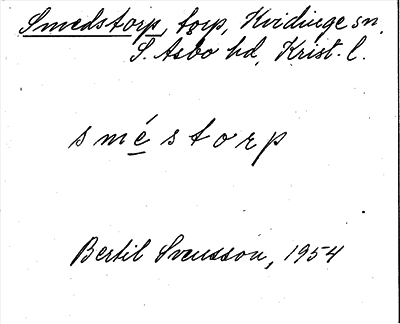 Smedstorp, torp, Kvidinge sn,
S. Åsbo hd, Krist. l.
sméstorp
Bertil Svensson, 1954